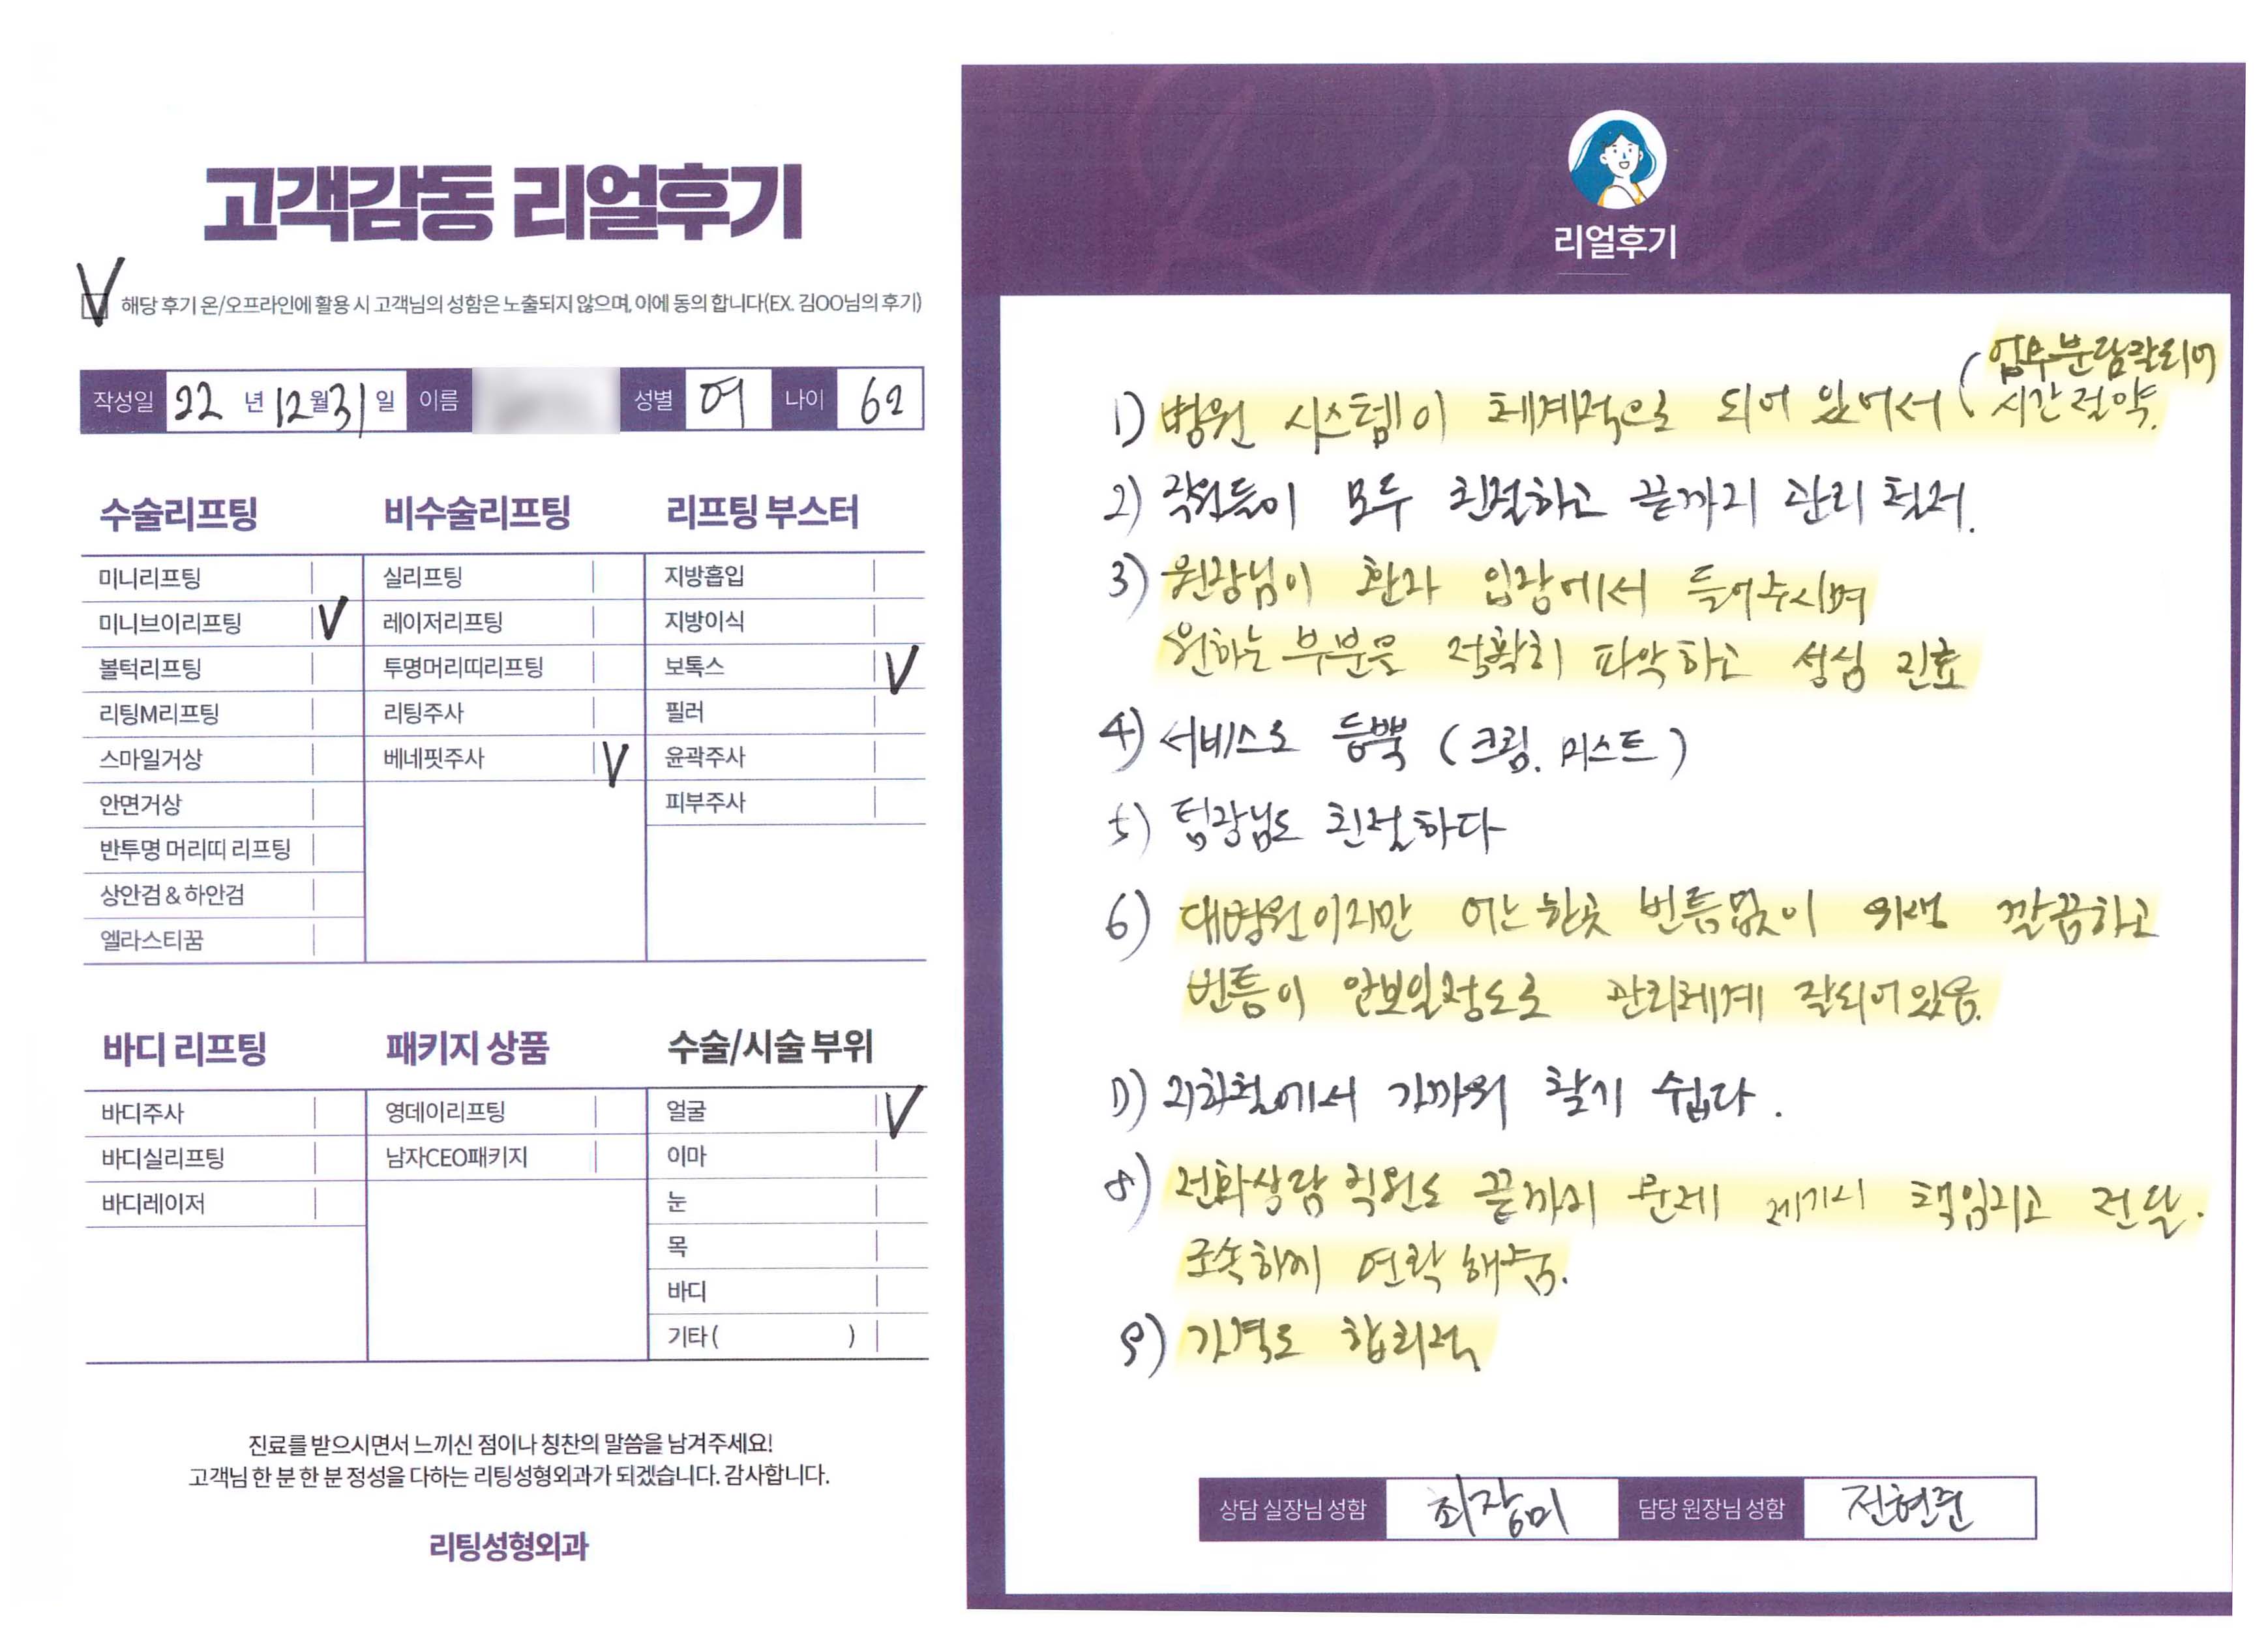 고객감동 리얼후기
V 해당 후기 온/오프라인에 활용 시 고객님의 성함은 노출되지 않으며, 이에 동의 합니다(EX. 김OO님의 후기)
작성일 22 년 12 월 31 일 이름 성별 여 나이 62
수술리프팅
미니리프팅
미니브이리프팅 V
볼턱리프팅
리팅M리프팅
스마일거상
안면거상
반투명 머리띠 리프팅
상안검 & 하안검
엘라스티꿈
비수술리프팅
실리프팅
레이저리프팅
투명머리띠리프팅
리팅주사
베네핏주사 V
리프팅 부스터
지방흡입
지방이식
보톡스 V
필러
윤곽주사
피부주사
바디 리프팅
바디주사
바디실리프팅
바디레이저
패키지 상품
영데이리프팅
남자CEO패키지
수술/시술 부위
얼굴 V
이마
눈
목
바디
기타 ( )
진료를 받으시면서 느끼신 점이나 칭찬의 말씀을 남겨주세요!
고객님 한 분 한 분 정성을 다하는 리팅성형외과가 되겠습니다. 감사합니다.
리팅성형외과
Review
리얼후기
1) 병원 시스템이 체계적으로 되어 있어서 (업무분담잘되어
시간절약.
2) 직원들이 모두 친절하고 끝까지 관리 철저.
3) 원장님이 환자 입장에서 들어주시며
원하는 부분을 정확히 파악하고 성심 진료
4) 서비스도 듬뿍 (크림. 미스트)
5) 팀장님도 친절하다
6) 대병원이지만 어느한곳 빈틈없이 위생 깔끔하고
빈틈이 안보일정도로 관리체계 잘되어있음.
7) 지하철에서 가까워 찾기 쉽다.
8) 전화상담 직원도 끝까지 문제 제기시 책임지고 전달.
조속하게 연락해줌.
9) 가격도 합리적
상담 실장님 성함 최장미 담당 원장님 성함 전현준